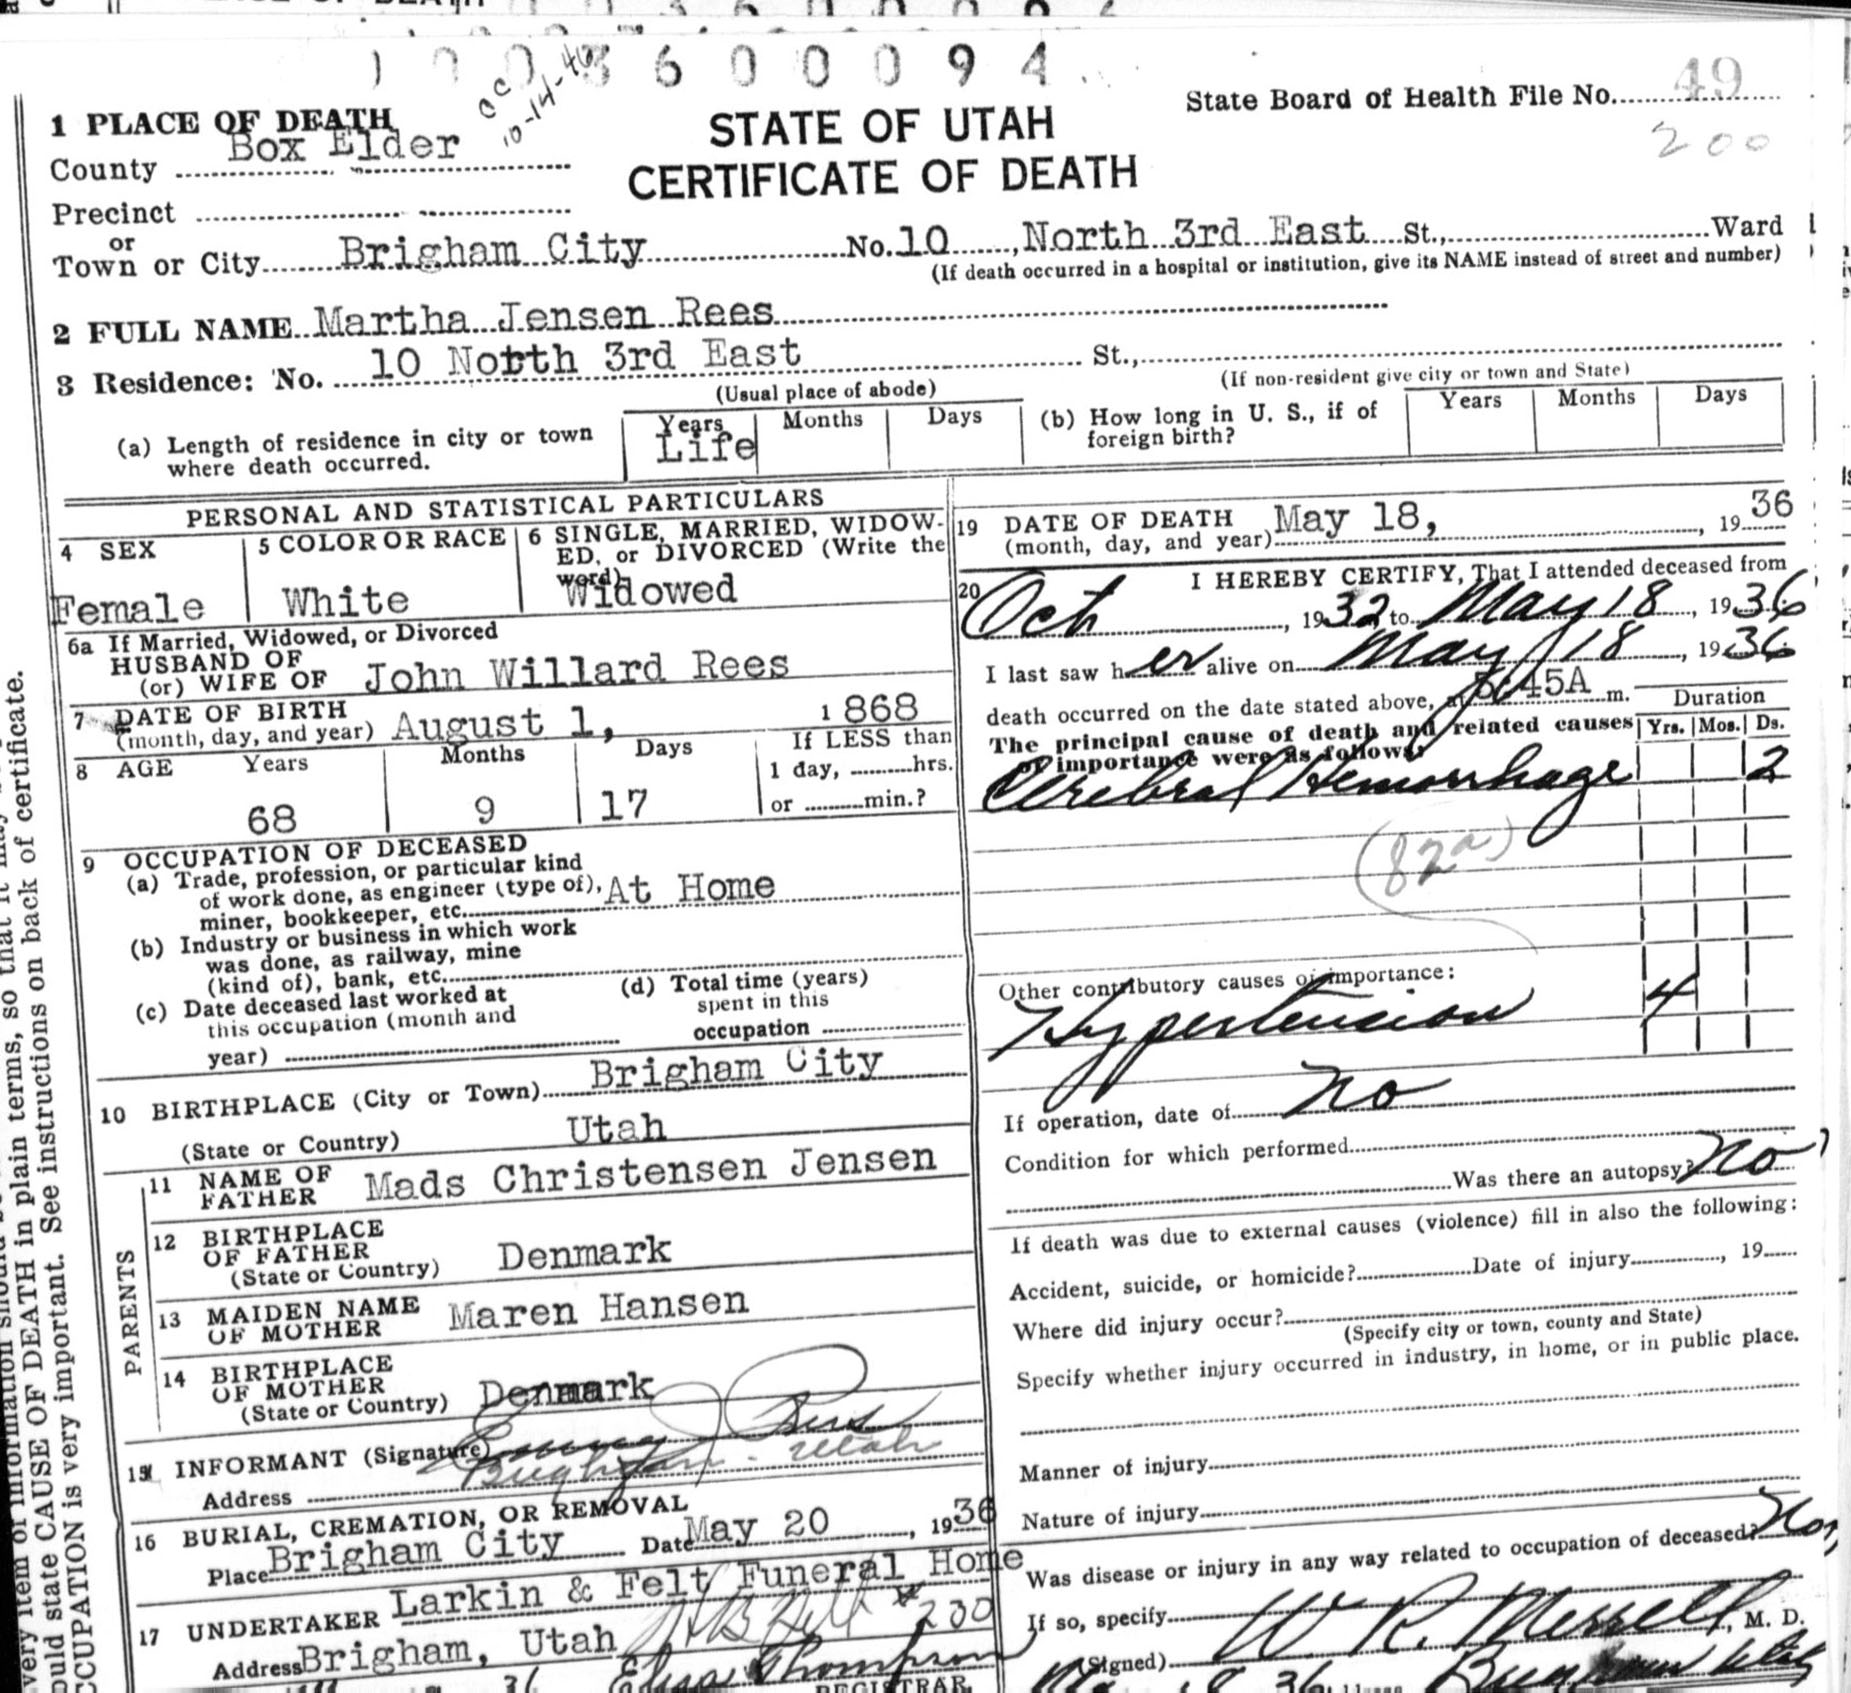 1 0 0 3 6 0 0 0 9 4
OC
10-14-46
State Board of Health File No. 49
200
1 PLACE OF DEATH
STATE OF UTAH
CERTIFICATE OF DEATH
County Box Elder
Precinct
or
Town or City Brigham City No. 10, North 3rd East St., Ward
(If death occurred in a hospital or institution, give its NAME instead of street and number)
2 FULL NAME Martha Jensen Rees
3 Residence: No. 10 North 3rd East St.,
(Usual place of abode) (If non-resident give city or town and State)
(a) Length of residence in city or town where death occurred. Years Life Months Days
(b) How long in U. S., if of foreign birth? Years Months Days
PERSONAL AND STATISTICAL PARTICULARS
4 SEX
Female
5 COLOR OR RACE
White
6 SINGLE, MARRIED, WIDOW-
ED, or DIVORCED (Write the
word)
Widowed
6a If Married, Widowed, or Divorced
HUSBAND OF
(or) WIFE OF John Willard Rees
7 DATE OF BIRTH
(month, day, and year) August 1, 1868
8 AGE Years Months Days If LESS than
1 day, hrs.
68 9 17 or min.?
9 OCCUPATION OF DECEASED
(a) Trade, profession, or particular kind
of work done, as engineer (type of), At Home
miner, bookkeeper, etc.
(b) Industry or business in which work
was done, as railway, mine
(kind of), bank, etc.
(c) Date deceased last worked at
this occupation (month and
year)
(d) Total time (years)
spent in this
occupation
10 BIRTHPLACE (City or Town) Brigham City
(State or Country) Utah
PARENTS
11 NAME OF
FATHER Mads Christensen Jensen
12 BIRTHPLACE
OF FATHER Denmark
(State or Country)
13 MAIDEN NAME
OF MOTHER Maren Hansen
14 BIRTHPLACE
OF MOTHER Denmark
(State or Country)
15 INFORMANT (Signature) Rees
Address Brigham. Utah
16 BURIAL, CREMATION, OR REMOVAL
Place Brigham City Date May 20, 1936
17 UNDERTAKER Larkin & Felt Funeral Home
230
Address Brigham, Utah
36 Thompson
REGISTRAR
19 DATE OF DEATH
(month, day, and year) May 18, 1936
20 I HEREBY CERTIFY, That I attended deceased from
Oct, 1932 to May 18, 1936
I last saw her alive on May 18, 1936
death occurred on the date stated above, at 5:45A m.
Duration
The principal cause of death and related causes
of importance were as follows:
Yrs. Mos. Ds.
Cerebral Hemorrhage 2
(82a)
Other contributory causes of importance:
Hypertension 4
If operation, date of No
Condition for which performed
Was there an autopsy? No
If death was due to external causes (violence) fill in also the following:
Accident, suicide, or homicide? Date of injury, 19
Where did injury occur?
(Specify city or town, county and State)
Specify whether injury occurred in industry, in home, or in public place.
Manner of injury
Nature of injury
Was disease or injury in any way related to occupation of deceased? No
If so, specify
(Signed) W R Merrell, M. D.
8 36 Brigham Utah
very item of information
ould state CAUSE OF DEATH in plain terms, so that it may
CCUPATION is very important. See instructions on back of certificate.